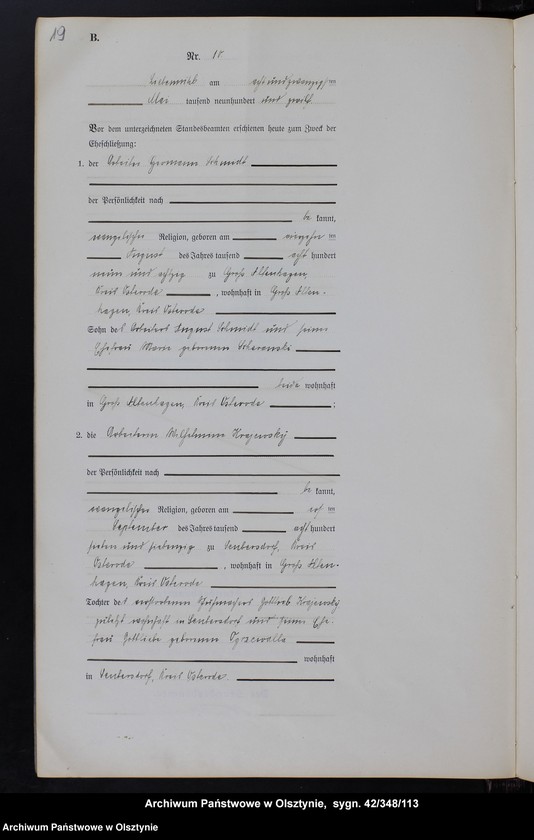 19
B.
Nr. 18
am acht und zwanzig ten
Mai tausend neunhundert und zwölf
Vor dem unterzeichneten Standesbeamten erschienen heute zum Zweck der
Eheschließung:
1. der Arbeiter Hermann Schmidt
der Persönlichkeit nach
be kannt,
evangelischer Religion, geboren am ten
August des Jahres tausend acht hundert
neun und achtzig zu Groß Altenhagen,
Kreis Osterode , wohnhaft in Groß Alten-
hagen, Kreis Osterode
Sohn des Arbeiters August Schmidt und seiner
Ehefrau Marie geborenen
beide wohnhaft
in Groß Altenhagen, Kreis Osterode ;
2. die Arbeiterin Wilhelmine Krajewsky
der Persönlichkeit nach
be kannt,
evangelischer Religion, geboren am ten
September des Jahres tausend acht hundert
sieben und siebenzig zu Seubersdorf, Kreis
Osterode , wohnhaft in Groß Alten-
hagen, Kreis Osterode
Tochter des verstorbenen Gottlieb Krajewsky
zuletzt wohnhaft in Seubersdorf und seiner Ehe-
frau Gottliebe geborenen
wohnhaft
in Seubersdorf, Kreis Osterode
Archiwum Państwowe w Olsztynie, sygn. 42/348/113
Archiwum Państwowe w Olsztynie